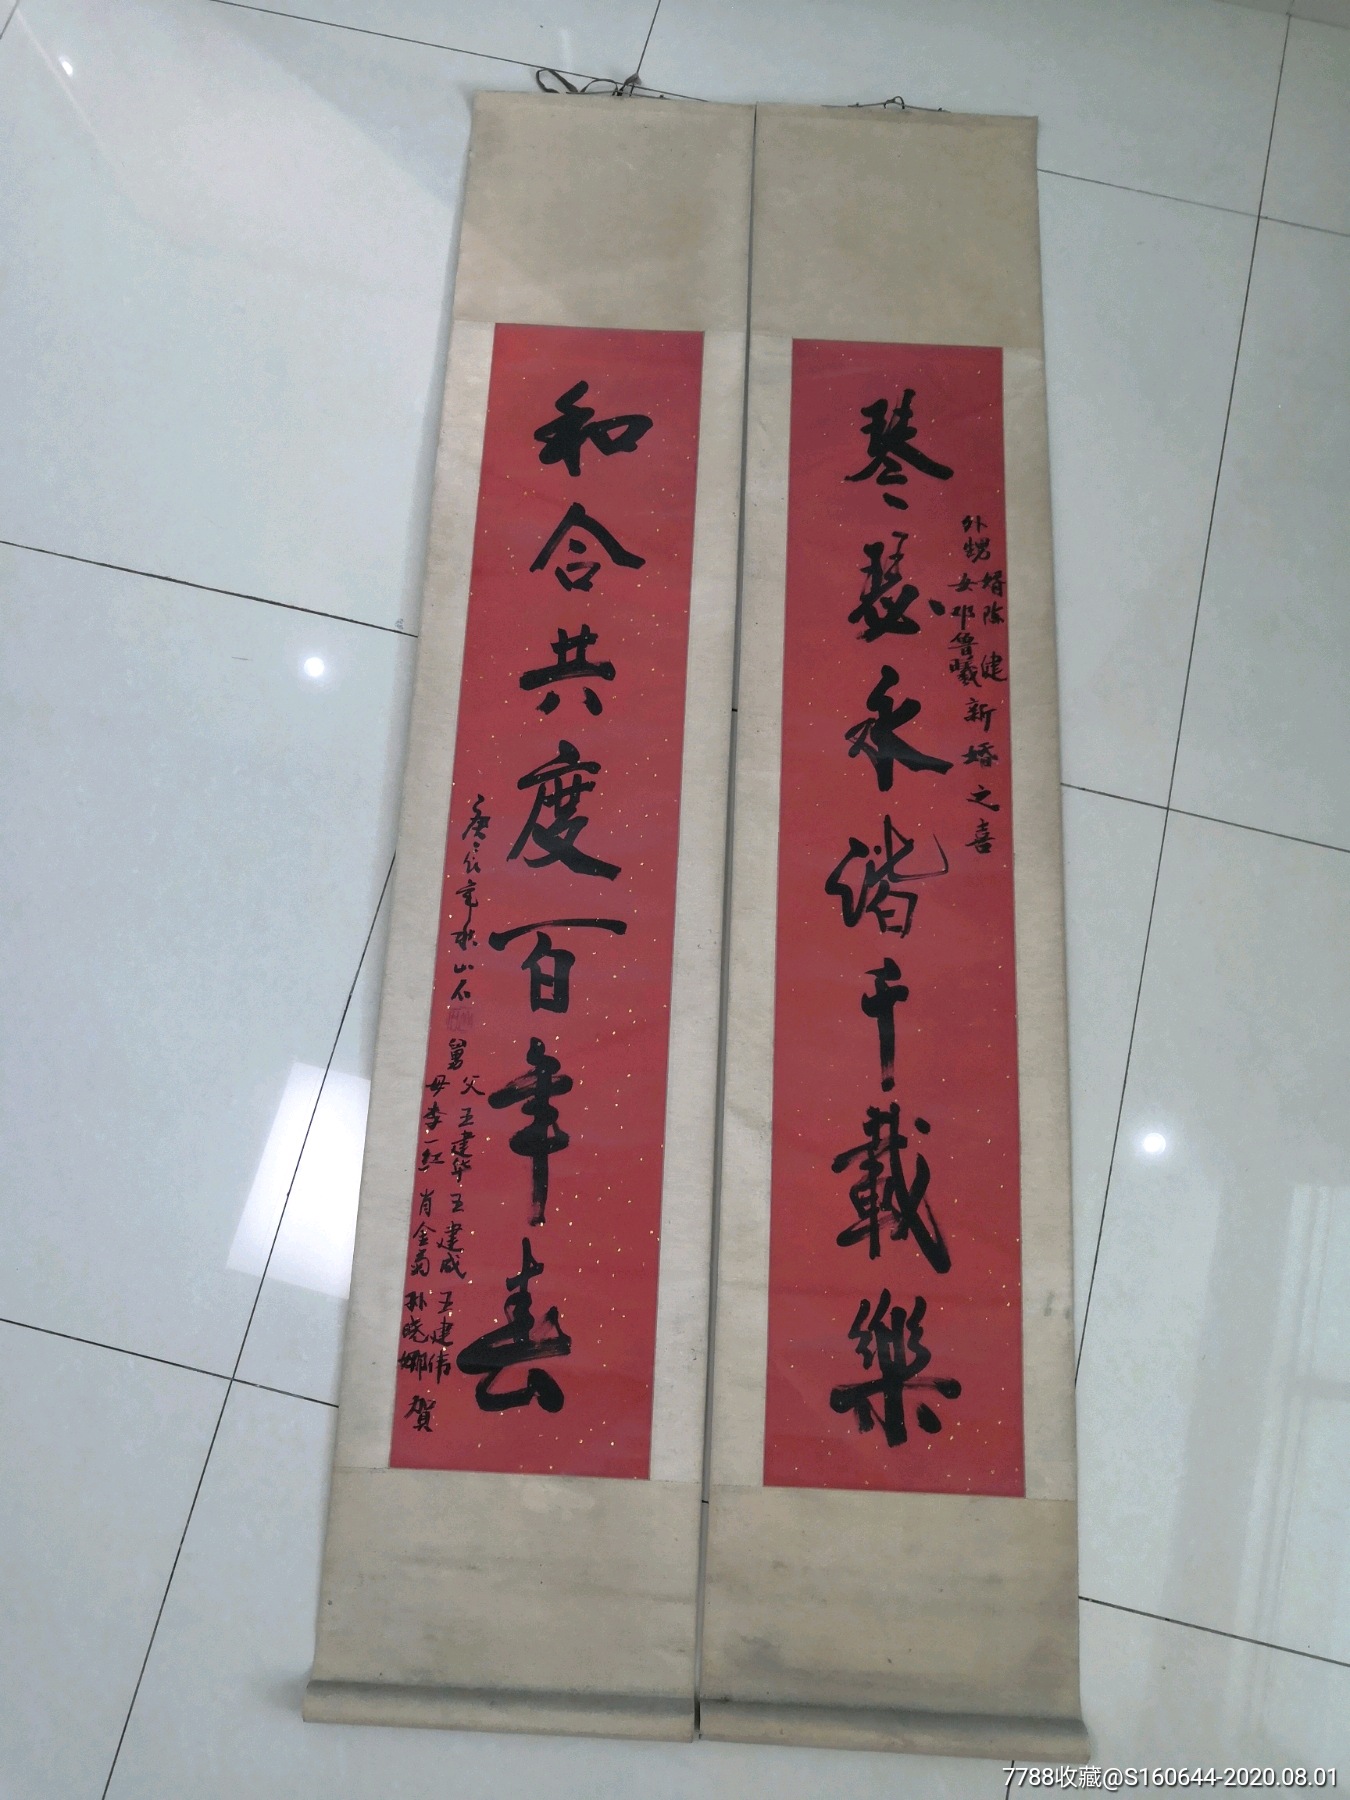 琴瑟永谐千載樂
外甥
婿陈健
女邓鲁曦
新婚之喜
和合共度百年春
庚辰年秋山石
舅
父王建华王建成王建伟
母李一红肖金菊孙晓娜
賀
7788收藏@S160644-2020.08.01